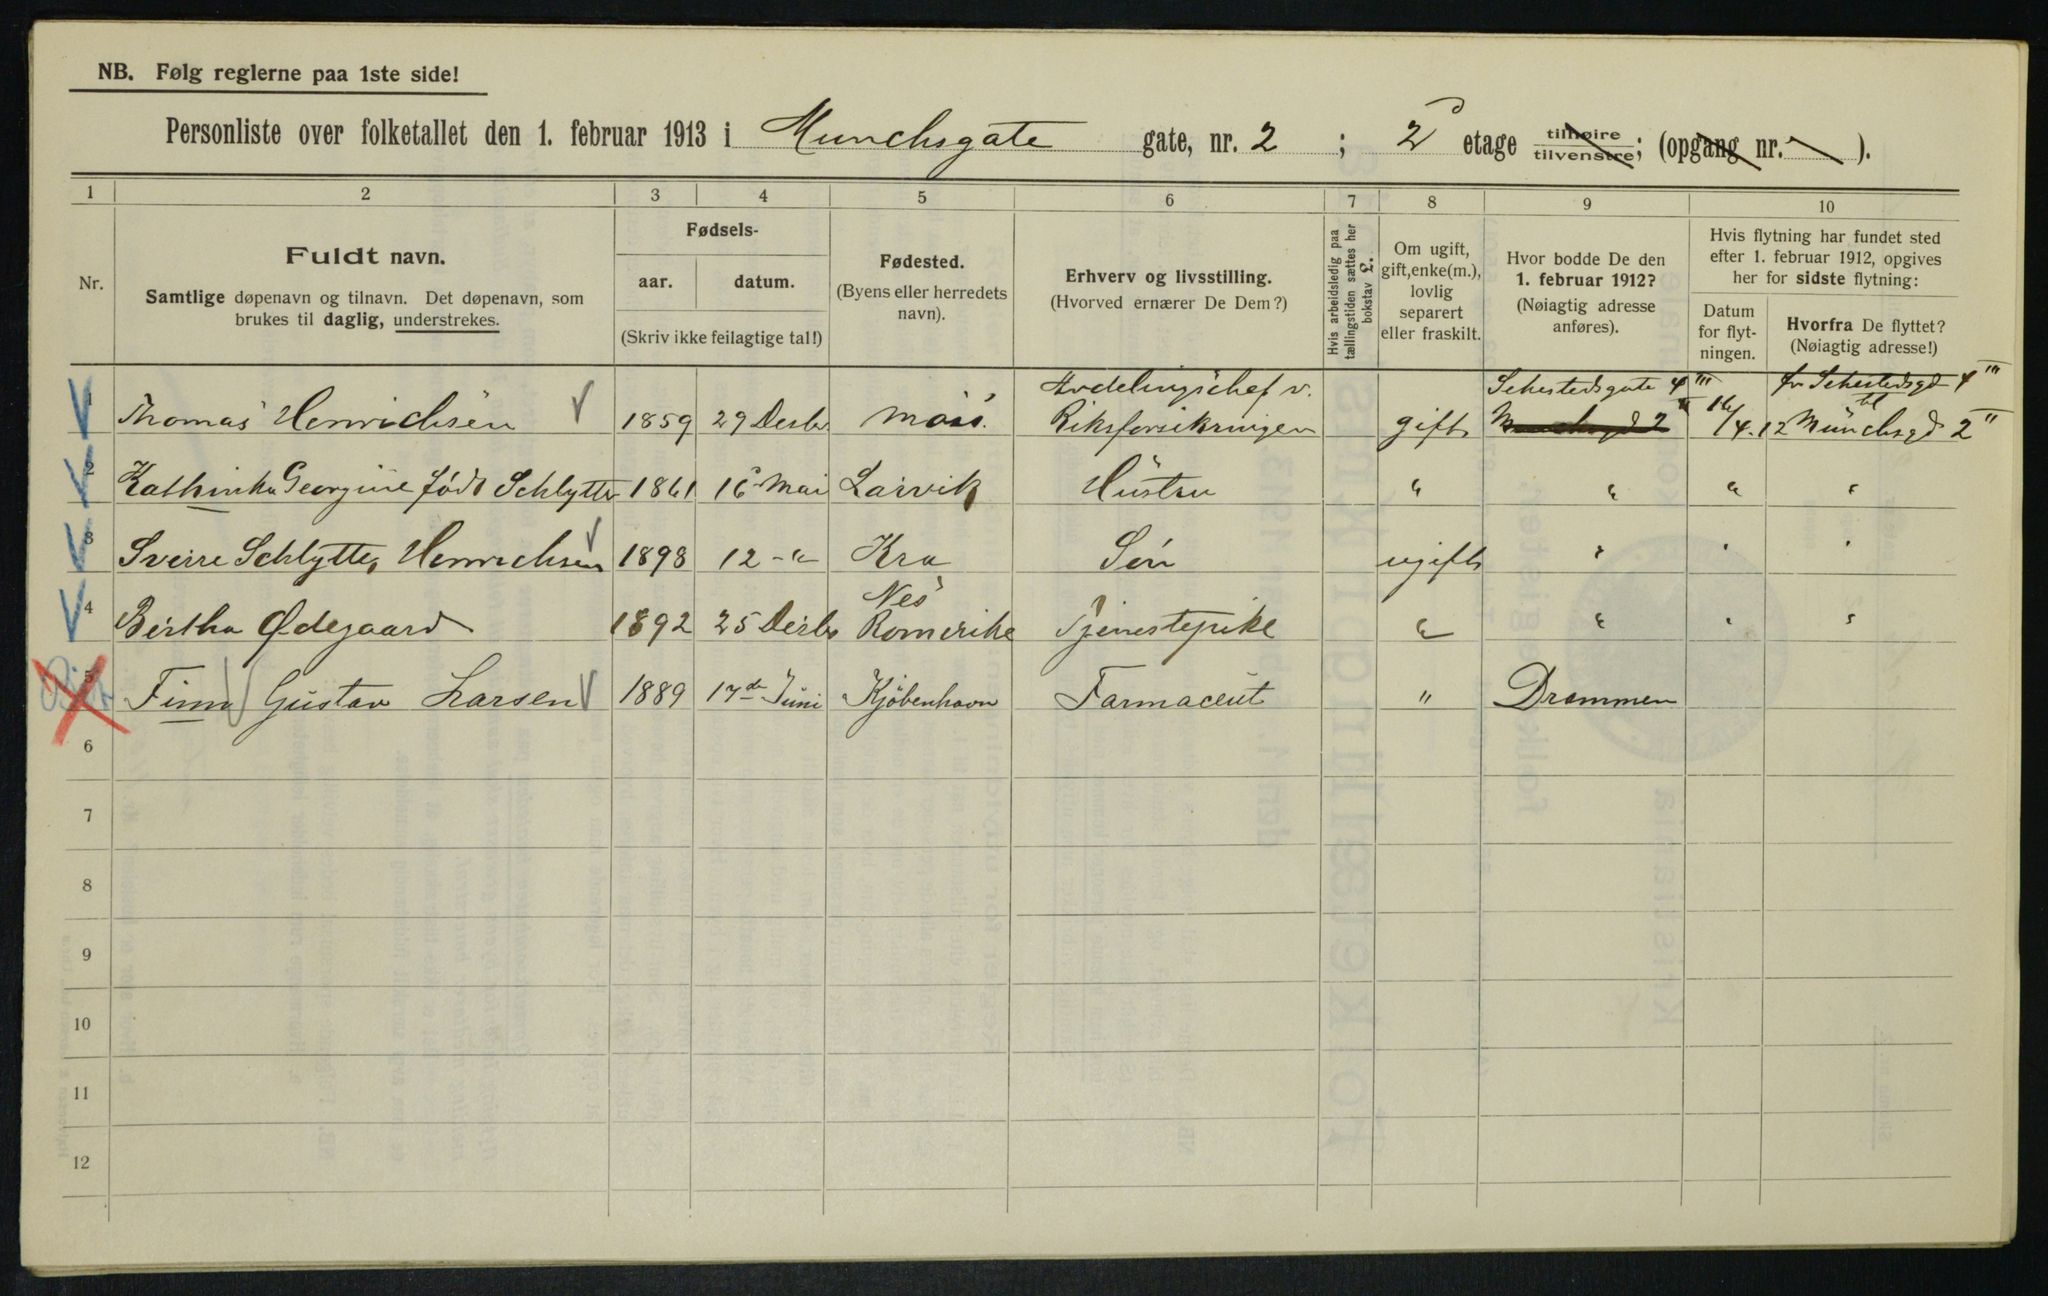 NB. Følg reglerne paa 1ste side!
Personliste over folketallet den 1. februar 1913 i Munchsgate gate, nr. 2 ; 2 etage tilhøire tilvenstre; (opgang nr. ).
1 2 3 4 5 6 7 8 9 10
Nr.
Fuldt navn.
Samtlige døpenavn og tilnavn. Det døpenavn, som
brukes til daglig, understrekes.
Fødsels-
aar. datum.
(Skriv ikke feilagtige tal!)
Fødested.
(Byens eller herredets
navn).
Erhverv og livsstilling.
(Hvorved ernærer De Dem?)
Hvis arbeidsledig paa
tællingstiden sættes her
bokstav £.
Om ugift,
gift, enke(m.),
lovlig
separert
eller fraskilt.
Hvor bodde De den
1. februar 1912?
(Nøiagtig adresse
anføres).
Hvis flytning har fundet sted
efter 1. februar 1912, opgives
her for sidste flytning:
Datum
for flyt-
ningen.
Hvorfra De flyttet?
(Nøiagtig adresse!)
Avdelingschef v. Sehestedsgate 4 III fr Sehestedsgd 4 III
1 Thomas Henrichsen 1859 29 Desbr Moss. Riksforsikringen gift Munchsgd 2 II 16/4.12 til Münchsgd 2 II
2 Kathinka Georgine født Schlytter 1861 16 Mai Larvik Hustru " " " "
3 Sverre Schlytter Henrichsen 1898 12 - " Kra Søn ugift " " "
Nes
4 Bertha Ødegaard 1892 25 Desbr Romerike Tjenestepike " " " "
5 Finn Gustav Larsen 1889 17de Juni Kjøbenhavn Farmaceut " Drammen
6
7
8
9
10
11
12